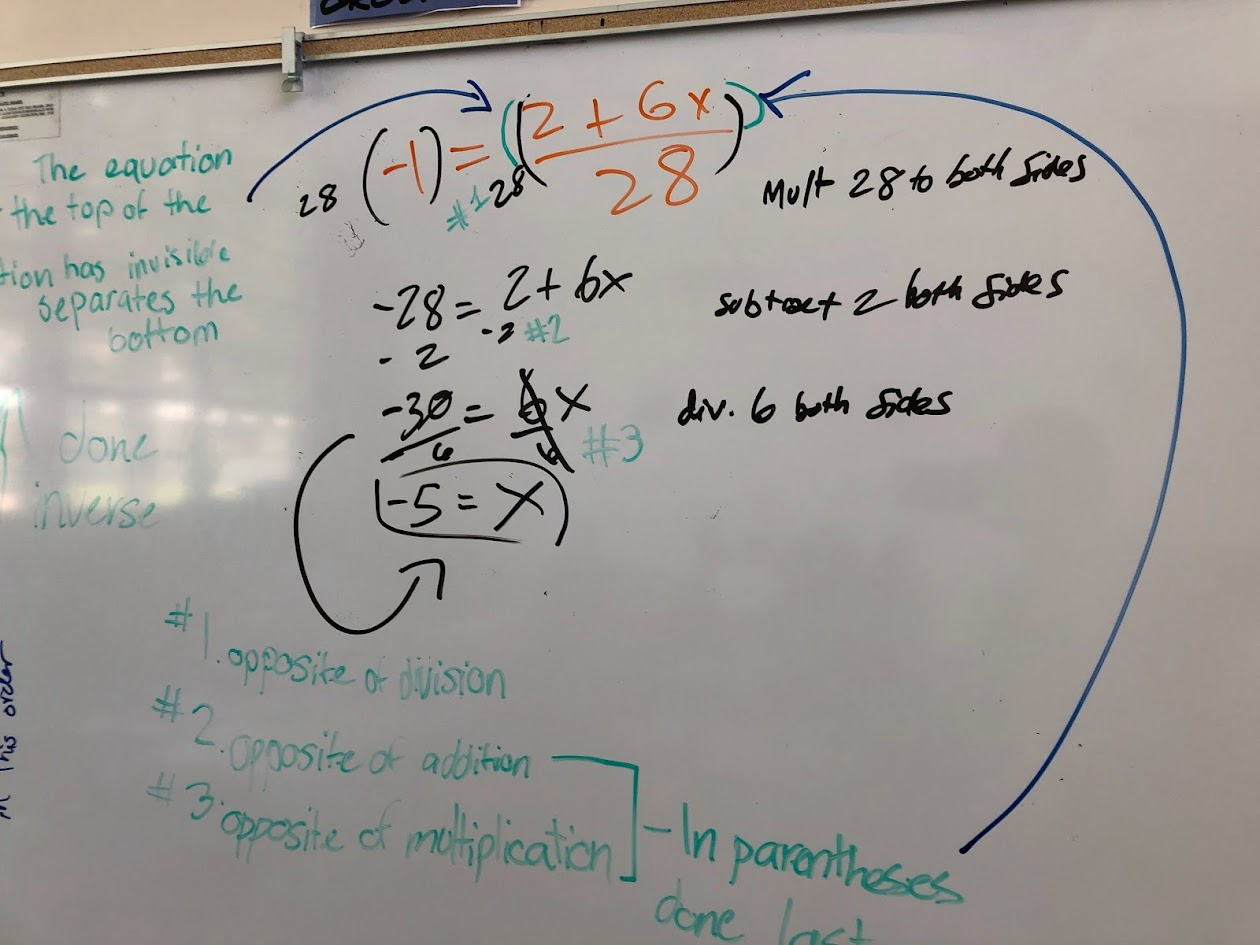 The equation
the top of the
tion has invisible
separates the
bottom
done
inverse
In This order
28 (-1) = 28 (2 + 6x / 28)
#1
Mult 28 to both sides
-28 = 2 + 6x
subtract 2 both sides
- 2 -2 #2
-30 = 6x
div. 6 both sides
6 6 #3
-5 = x
#1. opposite of division
#2. opposite of addition
#3. opposite of multiplication
- In parentheses
done last